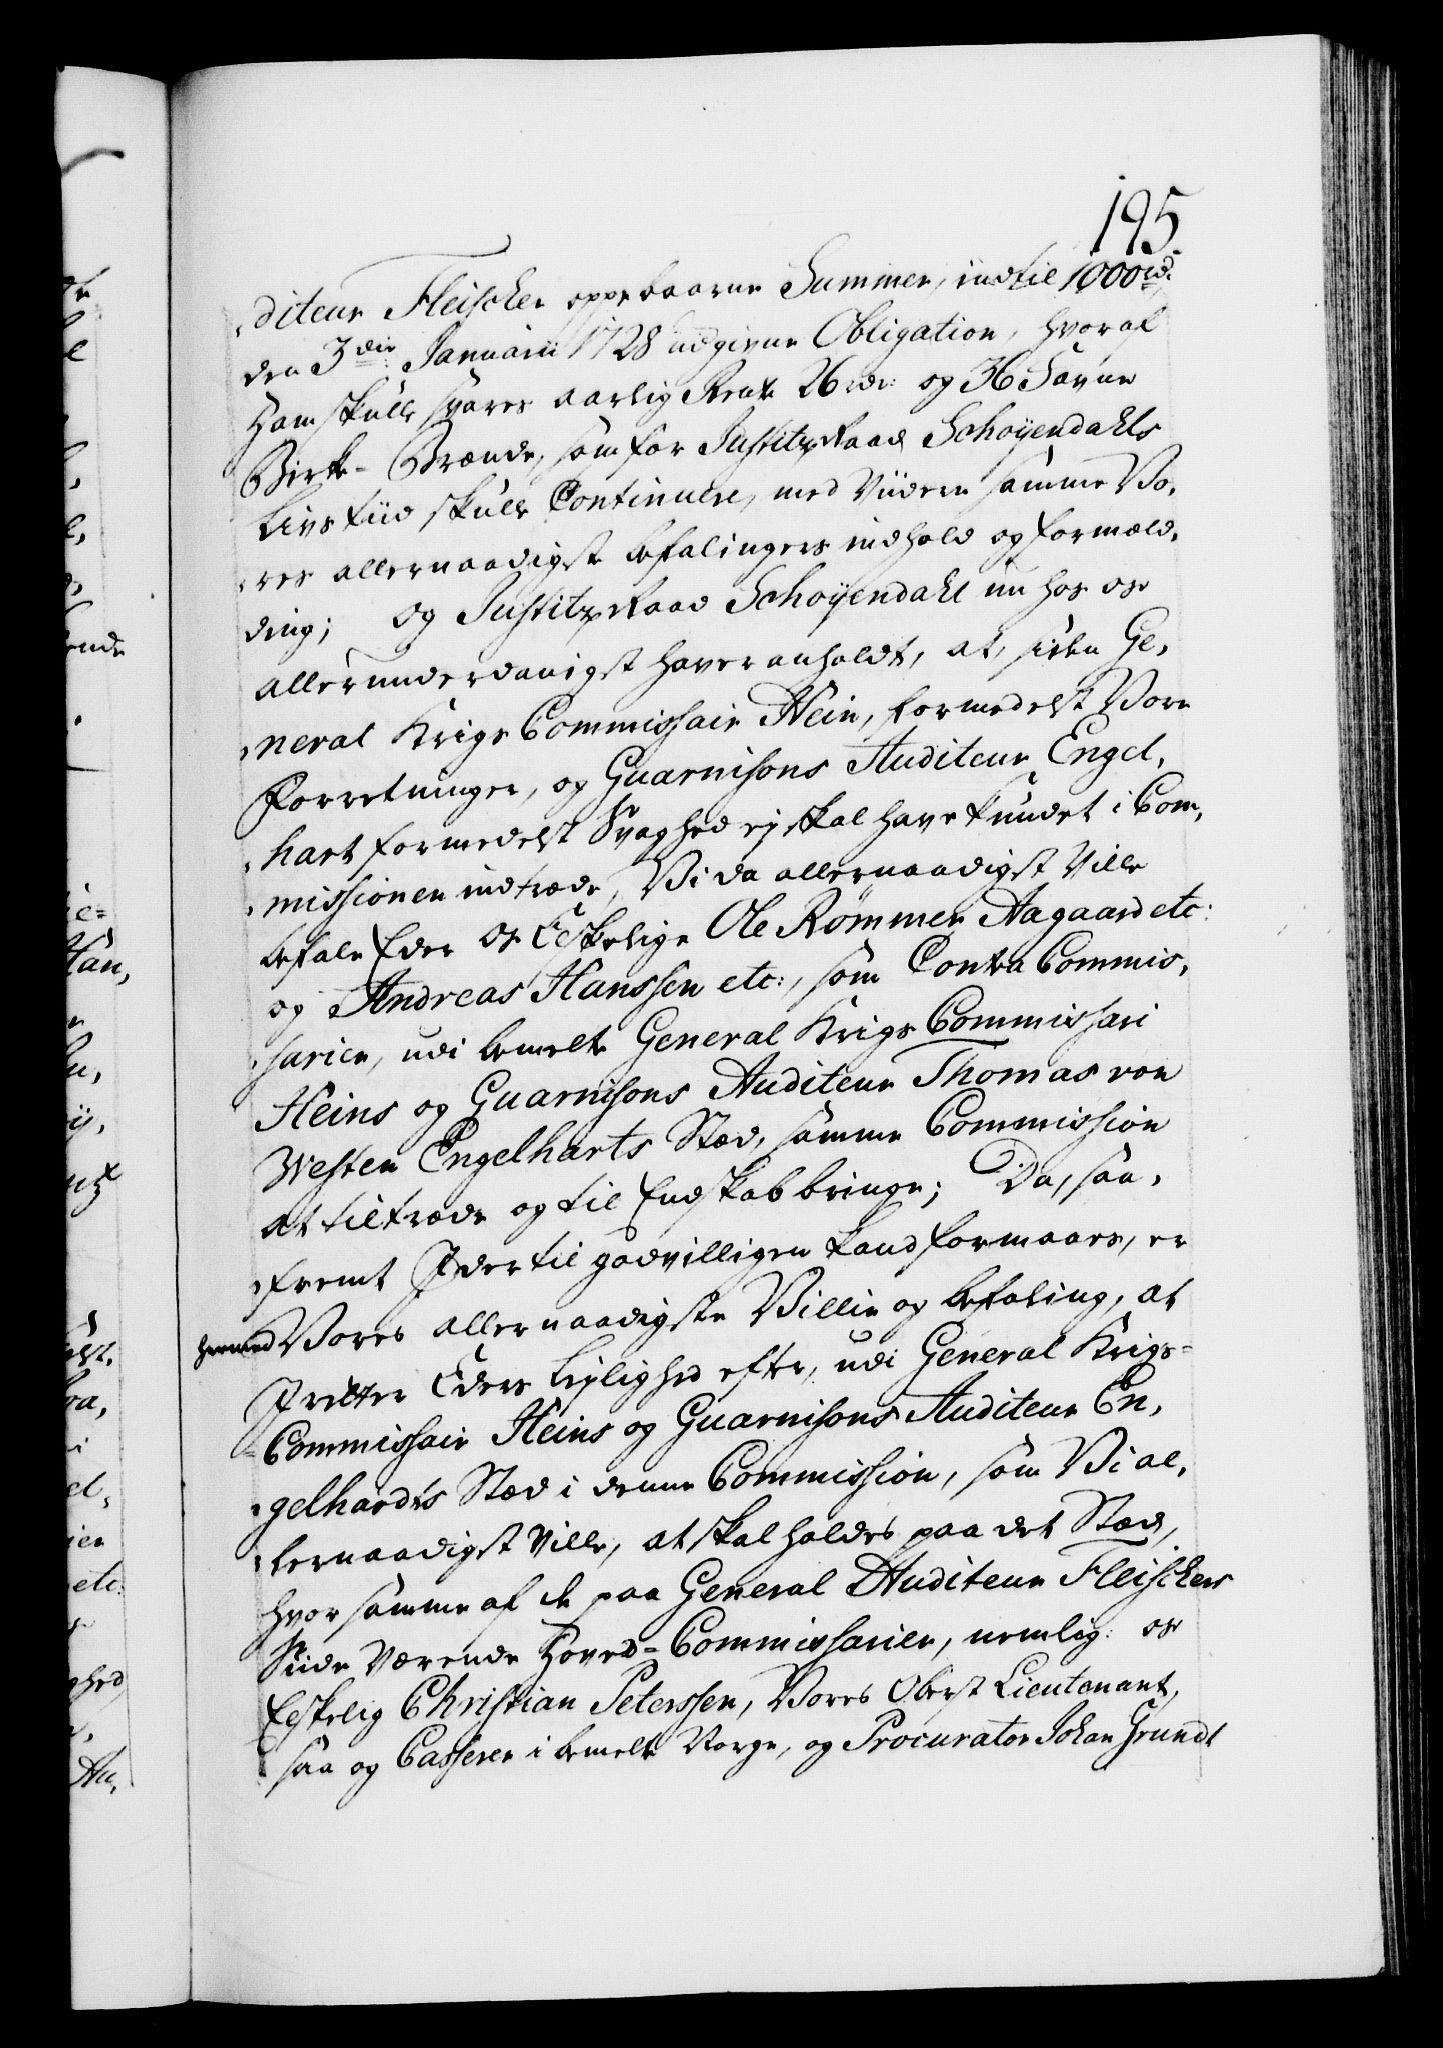 195.
diteur Fleischer oppebaarne Summer, indtil 1000 rd.
den 3die Januarii 1728 udgivne Obligation, hvoraf
Ham skulle svares aarlig Rente 26 rdr: og 36 Favne
Birke-Brænde, som for Justitz Raad Schøyendahls
Livs tiid skulle Continuere, med Viidere samme Vo-
res allernaadigste befalingers indhold og formæld-
ding; og Justitz Raad Schøyendahl nu hos os
allerunderdanigst haver anholdt, at, siden Ge-
neral Krigs Commissair Hein, formedelst Vore
Forretninger, og Guarnisons Auditeur Engel-
hart formedelst Svaghed ej skal have kundet i Com-
missionen indtræde, Vi da allernaadigst Ville
befale Eder Os Elskelige Ole Rømmer Aagaard etc:
og Andreas Hanssen etc:, som Contra Commis-
sarier, udi bemelte General Krigs Commissari
Heins og Guarnisons Auditeur Thomas von
Westen Engelharts Stæd, samme Commission
at tiltræde og til Endskab bringe; Da, saa-
fremt I dertil godvilligen kand formaaes, er
hermed Vores allernaadigste Villie og befaling, at
I retter Eders lejlighed efter, udi General Krigs-
Commissair Heins og Guarnisons Auditeur En-
gelhardts Stæd i denne Commission, som Vi al-
lernaadigst Ville, at skal holdes paa det Stæd,
hvor samme af de paa General Auditeur Fleischers
Siide Værende Hoved-Commissarier, nemlig: os
Elskelig Christian Peterssen, Vores Oberst Lieutenant,
saa og Casserer i bemelte Norge, og Procurator Johan Grundt